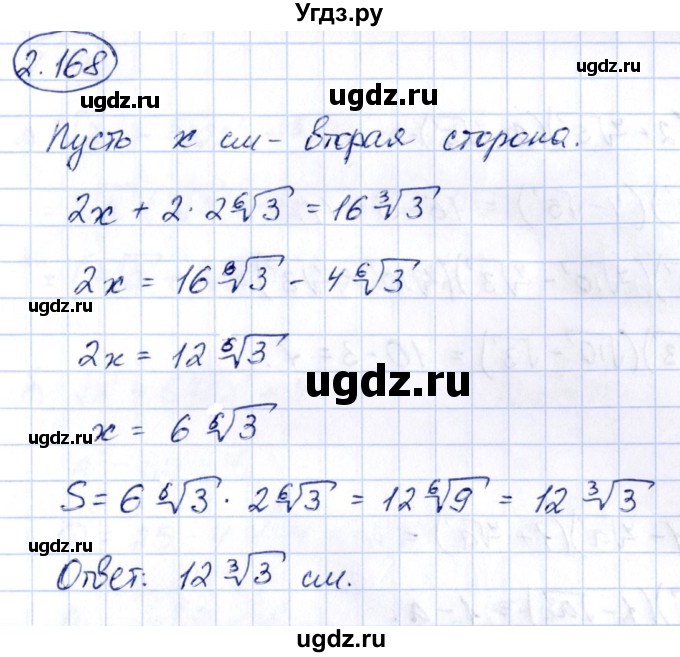 Угдз.ру
2.168
ugdz.ru ugdz.ru
Пусть x см - вторая сторона.
ugdz.ru
2x + 2 · 2⁶√3 = 16³√3
2x = 16⁶√3 - 4⁶√3
ugdz.ru ugdz.ru
2x = 12⁶√3
ugdz.ru
ugdz.ru x = 6⁶√3
S = 6⁶√3 · 2⁶√3 = 12⁶√9 = 12³√3
ugdz.ru ugdz.ru
Ответ: 12³√3 см.
ugdz.ru
ugdz.ru